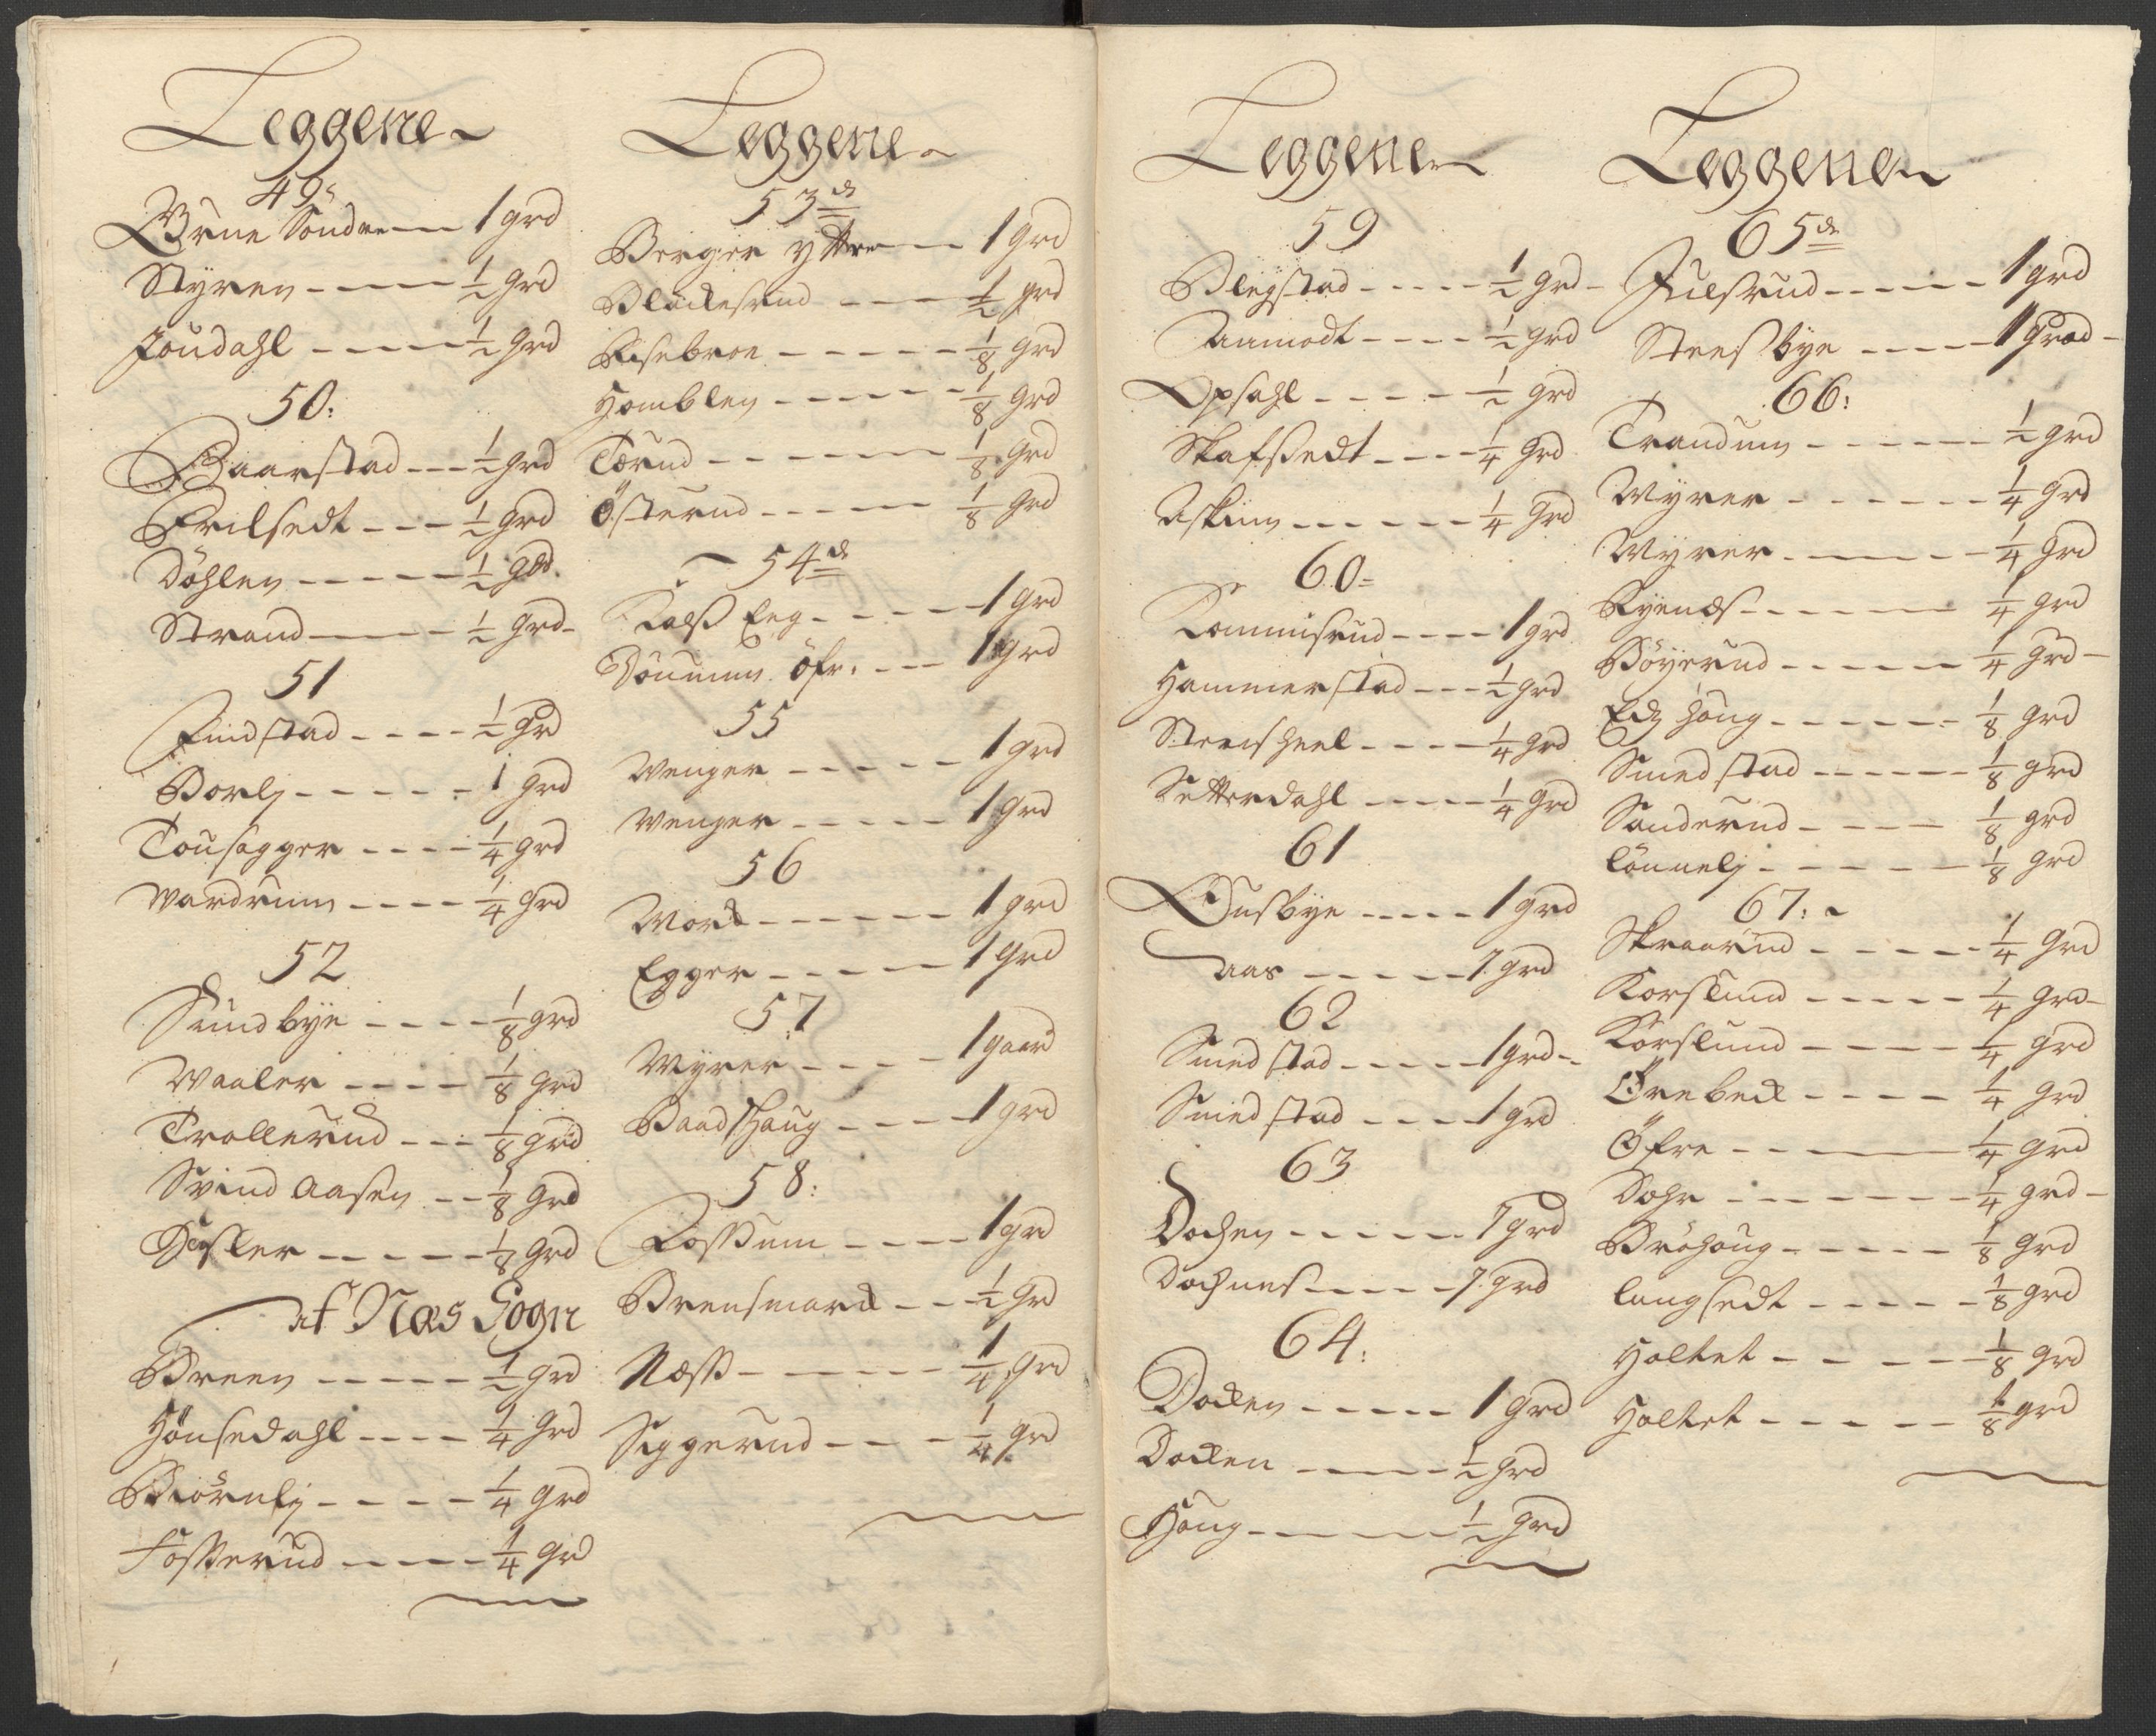 Leggene
49:
Brune Söndre 1 grd
Styren ½ grd
Joudahl ½ grd
50:
Baarstad ½ grd
Frilsedt ½ grd
Döhlen ½ grd
Strand ½ grd
51
Findstad ½ grd
Borlj 1 grd
Tousagger ¼ grd
Wardrum ¼ grd
52
Sundbye ⅛ grd
Waaler ⅛ grd
Trollerud ⅛ grd
Svind Aasen ⅛ grd
Disler ⅛ grd
af Næs Sogn
Breen ½ grd
Hönsedahl ¼ grd
Biörnlj ¼ grd
Fosserud ¼ grd
Leggene
53de
Berger yttre 1 grd
Blackesrud ½ grd
Risebroe ⅛ grd
Homblen ⅛ grd
Tærud ⅛ grd
Österud ⅛ grd
54de
Kals Eeg 1 grd
Döumm öfr. 1 grd
55
Wenger 1 grd
Wenger 1 grd
56
Work 1 grd
Egger 1 grd
57
Myrer 1 gaard
Baadshaug 1 grd
58:
Rossum 1 grd
Brensmark ½ grd
Næss ¼ grd
Siggerud ¼ grd
Leggene
59
Blegstad ½ grd
Aamodt ½ grd
Opsahl ½ grd
Skafsedt ¼ grd
Askim ¼ grd
60
Rommisrud 1 grd
Hammerstad ½ grd
Steensheel ¼ grd
Setterdahl ¼ grd
61
Husbye 1 grd
Aas 1 grd
62
Smedstad 1 grd
Smedstad 1 grd
63
Dochen 1 grd
Dochnes 1 grd
64:
Docken 1 grd
Docken ½ grd
Houg ½ grd
Leggene
65de
Julsrud 1 grd
Steensbye 1 grd
66:
Trandum ½ grd
Myrer ¼ grd
Myrer ¼ grd
Kyenes ¼ grd
Böyerud ¼ grd
Edz houg ⅛ grd
Smedstad ⅛ grd
Sanderud ⅛ grd
Lönnelj ⅛ grd
67:
Skraarud ¼ grd
Korslund ¼ grd
Korslund ¼ grd
Örebeck ¼ grd
Öfre ¼ grd
Dahr ¼ grd
Bröhoug ⅛ grd
Langsedt ⅛ grd
Holtet ⅛ grd
Holtet ⅛ grd